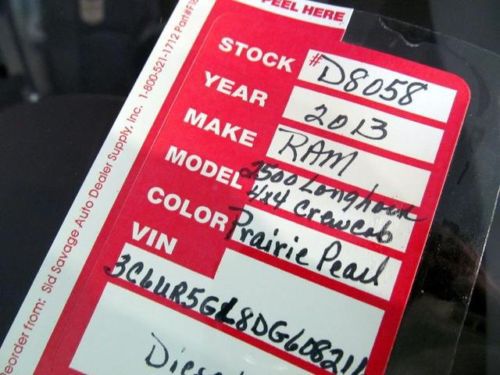 PEEL HERE
STOCK #D8058
YEAR 2013
MAKE RAM
MODEL 2500 Longhorn
4x4 Crewcab
COLOR Prairie Pearl
VIN
Reorder from: Sid Savage Auto Dealer Supply, Inc. 1-800-521-1712